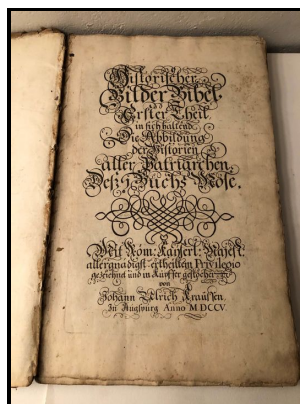 Historischer
Bilder Bibel.
Erster Theil,
in sich haltend
Die Abbildung
der Historien
aller Patriarchen,
Deß I. Buchs Mose.
Mit Röm: Kayserl: Majest:
allergnädigst ertheiltem Privilegio
gezeichnet und in Kupffer gestochen
von
Johann Ulrich Kraußen.
In Augspurg Anno MDCCV.